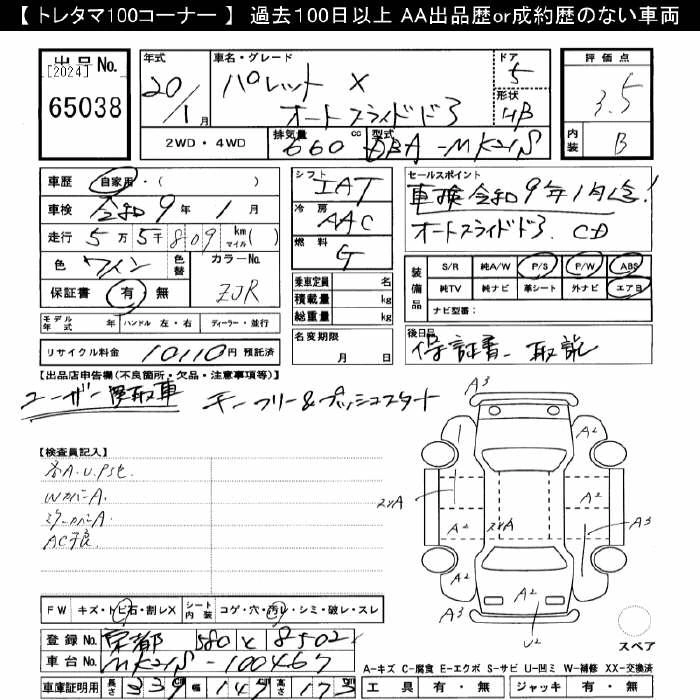 【 トレタマ100コーナー 】 過去100日以上 AA出品歴or成約歴のない車両
出品No. [2024] 65038
年式 20/1月
車名・グレード パレット X オートスライドドア
ドア 5
形状 HB
評価点 3.5
内装 B
2WD・4WD
排気量 660 cc
型式 DBA-MK21S
車歴 自家用・( )
車検 令和9年1月
走行 5万5千809 km マイル( )
色 ワイン 色替
カラーNo. ZJR
保証書 有 無
モデル年式 年 ハンドル 左・右 ディーラー・並行
リサイクル料金 10110円 預託済
シフト IAT
冷房 AAC
燃料 G
乗車定員 名
積載量 kg
総重量 kg
名変期限 月 日
セールスポイント
車検令和9年1月迄!
オートスライドドア. CD
装備品 S/R 純A/W P/S P/W ABS
純TV 純ナビ 革シート 外ナビ エアB
ナビ型番:
後日品 保証書、取説
【出品店申告欄(不良箇所・欠品・注意事項等)】
ユーザー買取車 キーフリー&プッシュスタート
【検査員記入】
各A.U.Pse.
WカバーA.
ミラーカバーA.
AC不良
A3
A2
A2
A2
2XA
2XA
A2
A3
A2
A2
A3
U2
スペア
FW キズ・トビ石・割レX シート内装 コゲ・穴・汚レ・シミ・破レ・スレ
登録No. 京都 580 と 8502
車台No. MK21S-100467
車庫証明用 長さ 339 幅 147 高さ 173
A-キズ C-腐食 E-エクボ S-サビ U-凹ミ W-補修 XX-交換済
工具 有・無 ジャッキ 有・無